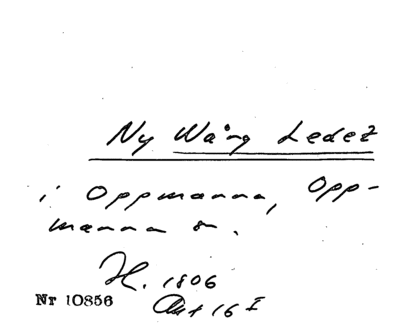 Ny Wång Ledet
i Oppmanna, Opp-
manna s.
H. 1806
Nr 10856
Akt 16 I